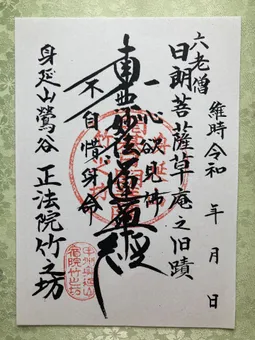 維時令和　年　月　日
六老僧
日朗菩薩草庵之旧蹟
一心欲見佛
南無妙法蓮華経
不自惜身命
身延山鶯谷　正法院竹之坊